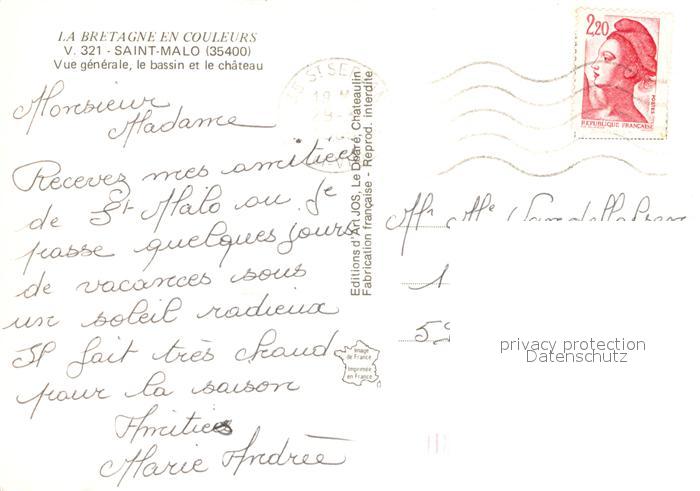 LA BRETAGNE EN COULEURS
V. 321 - SAINT-MALO (35400)
Vue générale, le bassin et le château
Monsieur
Madame
Recevez mes amitiées
de St Malo ou Je
passe quelques jours
de vacances sous
un soleil radieux
Il fait très chaud
pour la saison
Amitiés
Marie Andrée
Editions d'Art JOS, Le Doaré, Chateaulin
Fabrication française - Reprod. interdite
Image
de France
Imprimée
en France
ST SE
2,20
POSTES
REPUBLIQUE FRANÇAISE
Mr Me
1
59
privacy protection
Datenschutz